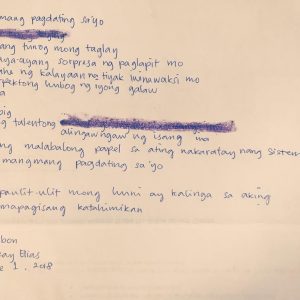 maang pagdating sa'yo
ang tunog mong taglay
aga-ayang sorpresa ng paglapit mo
he ng kalayaan ng tiyak lunawaksi mo
pektong lubog ng iyong galaw
a
big
g talentong
alingawngaw ng isang ina
ng malabaleng papel sa ating nakaratay nang sistem
mangmang pagdating sa'yo
paulit-ulit mong huni ay kalinga sa aking
mapagisang katahimikan
bon
ay Elias
e 1, 2018